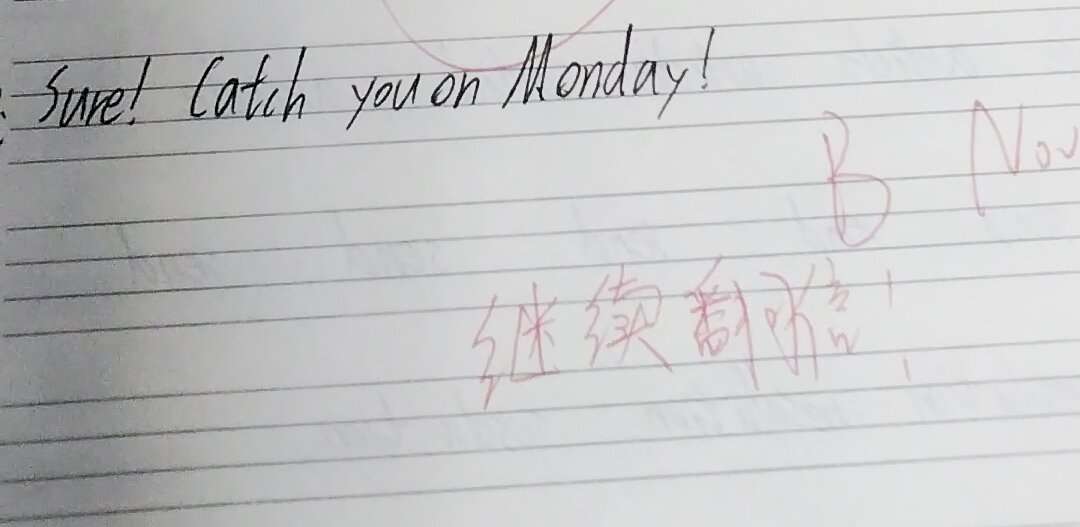 Sure! Catch you on Monday!
B Nov
继续